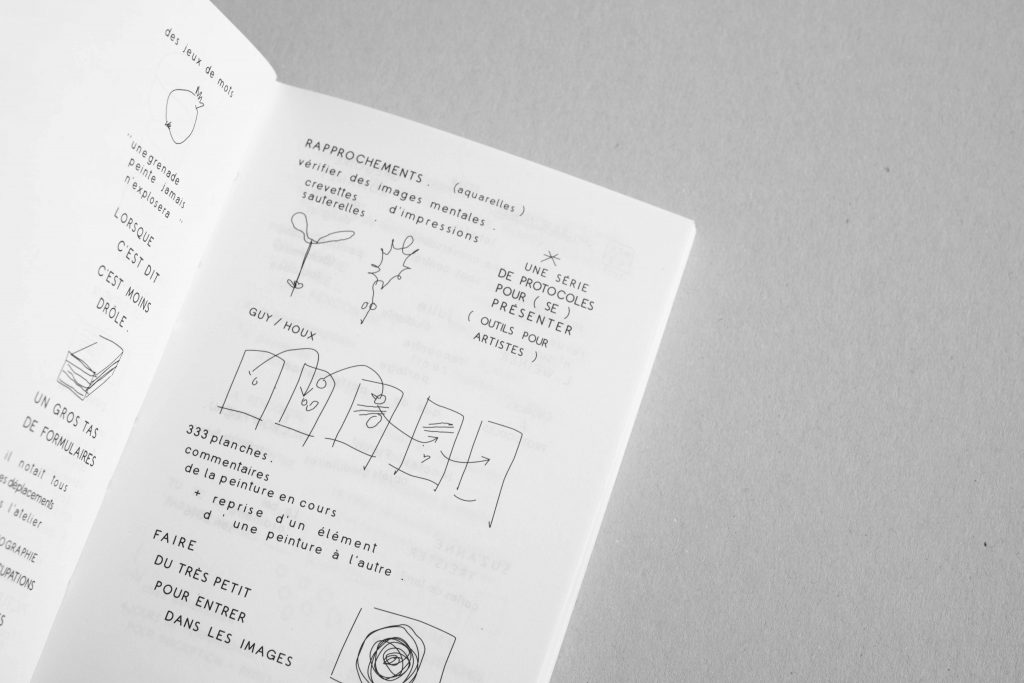 des jeux de mots
"une grenade
peinte jamais
n'explosera"
LORSQUE
C'EST DIT
C'EST MOINS
DRÔLE.
UN GROS TAS
DE FORMULAIRES
il notait tous
déplacements
l'atelier
RAPPROCHEMENTS. (aquarelles)
vérifier des images mentales.
crevettes d'impressions
sauterelles.
UNE SÉRIE
DE PROTOCOLES
POUR ( SE )
PRÉSENTER
( OUTILS POUR
ARTISTES )
GUY / HOUX
333 planches.
commentaires
de la peinture en cours
+ reprise d'un élément
d'une peinture à l'autre.
FAIRE
DU TRÈS PETIT
POUR ENTRER
DANS LES IMAGES